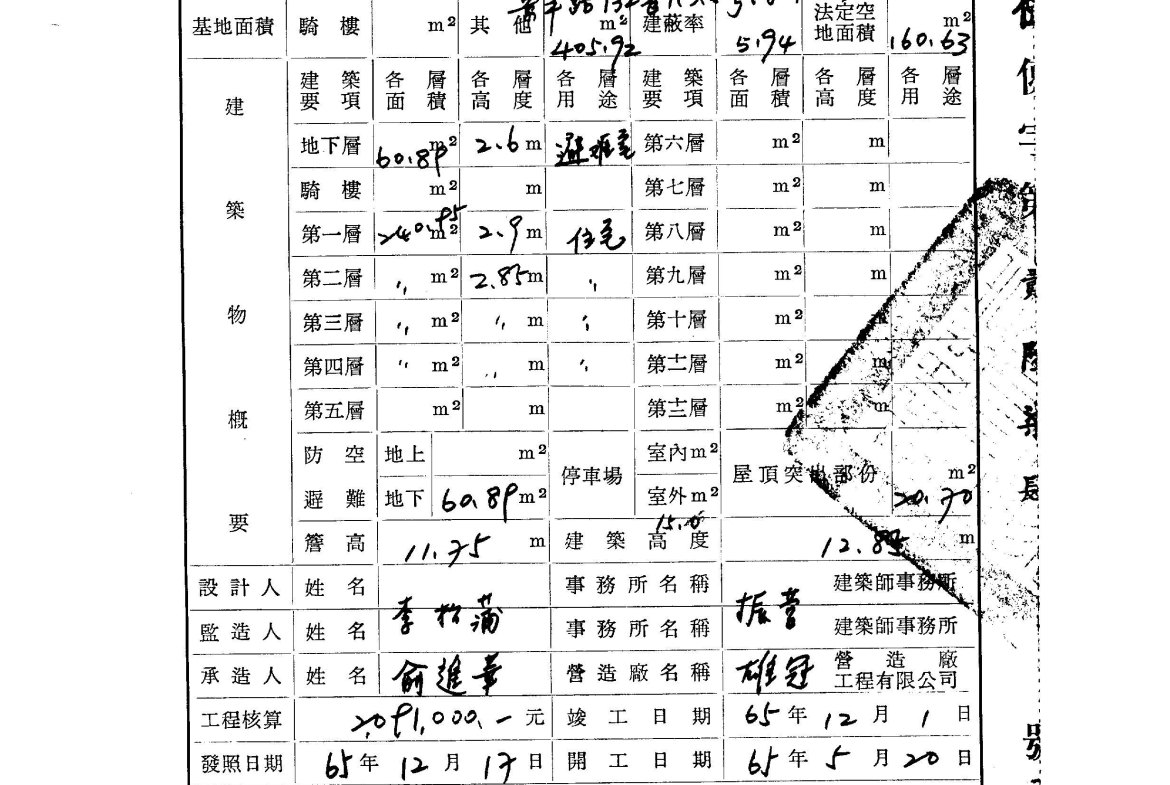 基地面積 騎樓 m² 其他 m² 405.92 建蔽率 5.94 法定空地面積 m² 160.63
建築物概要 建築要項 各層面積 各層高度 各層用途 建築要項 各層面積 各層高度 各層用途
地下層 60.89 m² 2.6 m 避難室 第六層 m² m
騎樓 m² m 第七層 m² m
第一層 240.95 m² 2.9 m 住宅 第八層 m² m
第二層 〃 m² 2.85 m 〃 第九層 m² m
第三層 〃 m² 〃 m 〃 第十層 m² m
第四層 〃 m² 〃 m 〃 第十一層 m² m
第五層 m² m 第十二層 m² m
防空避難 地上 m² 停車場 室內 m² 屋頂突出部份 m² 20.70
地下 60.89 m² 室外 m² 15.0
簷高 11.75 m 建築高度 12.85 m
設計人 姓名 李松蒲 事務所名稱 振營 建築師事務所
監造人 姓名 事務所名稱 建築師事務所
承造人 姓名 俞進華 營造廠名稱 雄冠 營造廠工程有限公司
工程核算 2,091,000.- 元 竣工日期 65年12月1日
發照日期 65年12月17日 開工日期 65年5月20日